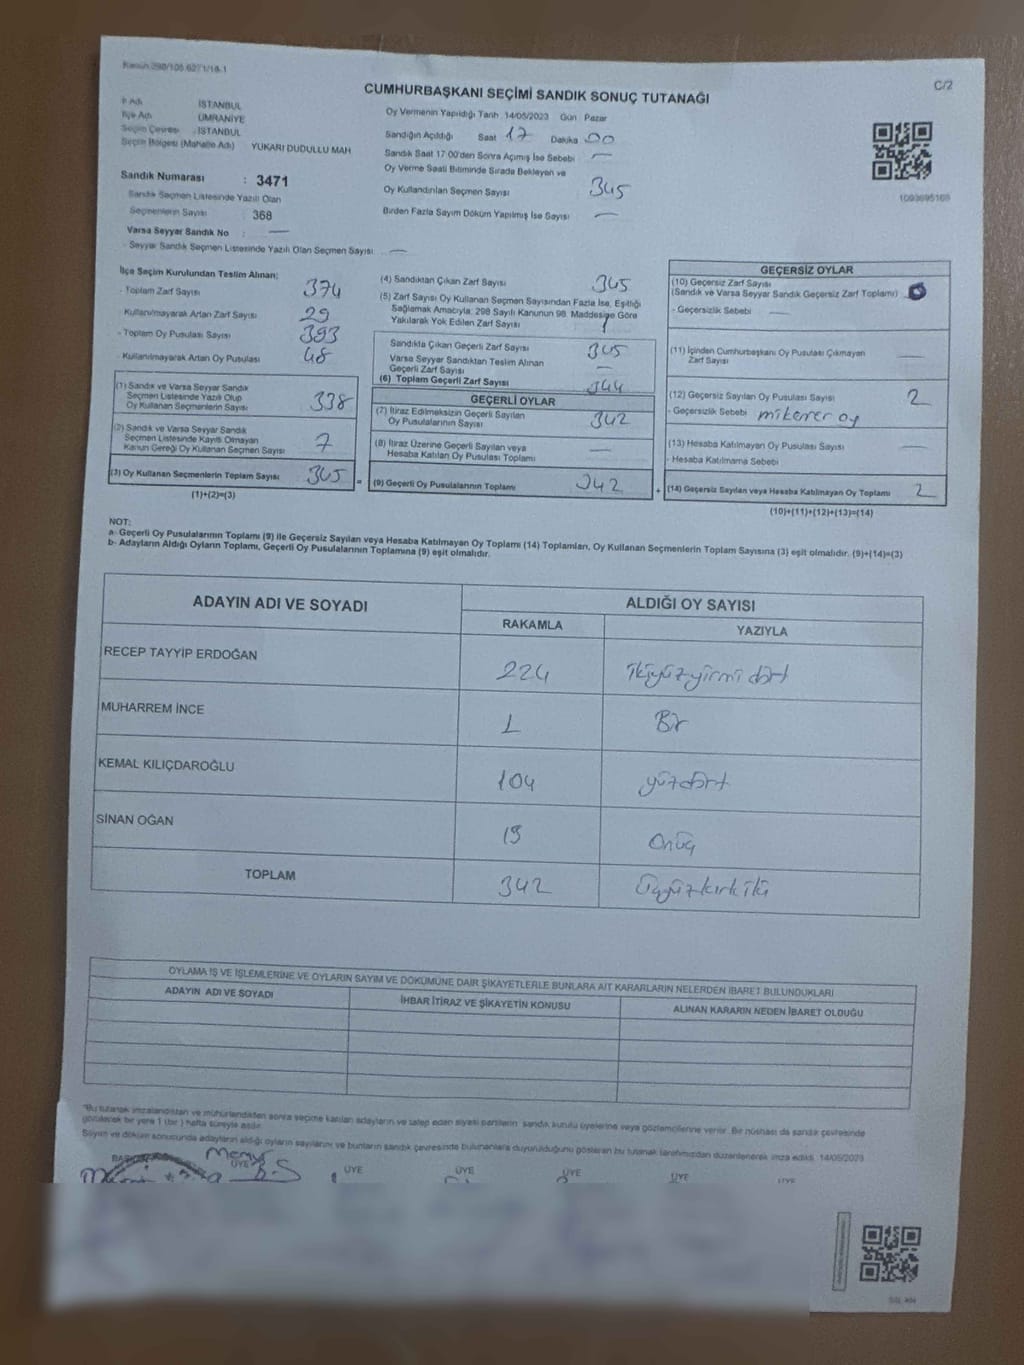 Kanun 298/105 627 1/18-1
C/2
CUMHURBAŞKANI SEÇİMİ SANDIK SONUÇ TUTANAĞI
İl Adı İSTANBUL
İlçe Adı ÜMRANİYE
Seçim Çevresi İSTANBUL
Seçim Bölgesi (Mahalle Adı) YUKARI DUDULLU MAH
Sandık Numarası : 3471
Sandık Seçmen Listesinde Yazılı Olan
Seçmenlerin Sayısı : 368
Varsa Seyyar Sandık No : —
- Seyyar Sandık Seçmen Listesinde Yazılı Olan Seçmen Sayısı: —
Oy Vermenin Yapıldığı Tarih 14/05/2023 Gün Pazar
Sandığın Açıldığı Saat 17 Dakika 00
Sandık Saat 17:00'den Sonra Açımış İse Sebebi —
Oy Verme Saati Bitiminde Sırada Bekleyen ve
Oy Kullandırılan Seçmen Sayısı 345
Birden Fazla Sayım Döküm Yapılmış İse Sayısı —
1093695168
İlçe Seçim Kurulundan Teslim Alınan;
- Toplam Zarf Sayısı 374
- Kullanılmayarak Artan Zarf Sayısı 29
- Toplam Oy Pusulası Sayısı 393
- Kullanılmayarak Artan Oy Pusulası 48
(1) Sandık ve Varsa Seyyar Sandık
Seçmen Listesinde Yazılı Olup
Oy Kullanan Seçmenlerin Sayısı 338
(2) Sandık ve Varsa Seyyar Sandık
Seçmen Listesinde Kayıtlı Olmayan
Kanun Gereği Oy Kullanan Seçmen Sayısı 7
(3) Oy Kullanan Seçmenlerin Toplam Sayısı 345
(1)+(2)=(3)
(4) Sandıktan Çıkan Zarf Sayısı 345
(5) Zarf Sayısı Oy Kullanan Seçmen Sayısından Fazla İse, Eşitliği
Sağlamak Amacıyla; 298 Sayılı Kanunun 98. Maddesine Göre
Yakılarak Yok Edilen Zarf Sayısı 1
Sandıkta Çıkan Geçerli Zarf Sayısı 345
Varsa Seyyar Sandıktan Teslim Alınan
Geçerli Zarf Sayısı —
(6) Toplam Geçerli Zarf Sayısı 344
GEÇERLİ OYLAR
(7) İtiraz Edilmeksizin Geçerli Sayılan
Oy Pusulalarının Sayısı 342
(8) İtiraz Üzerine Geçerli Sayılan veya
Hesaba Katılan Oy Pusulası Toplamı —
= (9) Geçerli Oy Pusulalarının Toplamı 342
GEÇERSİZ OYLAR
(10) Geçersiz Zarf Sayısı
(Sandık ve Varsa Seyyar Sandık Geçersiz Zarf Toplamı)
- Geçersizlik Sebebi —
(11) İçinden Cumhurbaşkanı Oy Pusulası Çıkmayan
Zarf Sayısı —
(12) Geçersiz Sayılan Oy Pusulası Sayısı 2
- Geçersizlik Sebebi mükerrer oy
(13) Hesaba Katılmayan Oy Pusulası Sayısı —
- Hesaba Katılmama Sebebi
+ (14) Geçersiz Sayılan veya Hesaba Katılmayan Oy Toplamı 2
(10)+(11)+(12)+(13)=(14)
NOT:
a- Geçerli Oy Pusulalarının Toplamı (9) ile Geçersiz Sayılan veya Hesaba Katılmayan Oy Toplamı (14) Toplamları, Oy Kullanan Seçmenlerin Toplam Sayısına (3) eşit olmalıdır. (9)+(14)=(3)
b- Adayların Aldığı Oyların Toplamı, Geçerli Oy Pusulalarının Toplamına (9) eşit olmalıdır.
ADAYIN ADI VE SOYADI
ALDIĞI OY SAYISI
RAKAMLA YAZIYLA
RECEP TAYYİP ERDOĞAN 224 ikiyüzyirmi dört
MUHARREM İNCE 1 Bir
KEMAL KILIÇDAROĞLU 104 yüzdört
SİNAN OĞAN 13 Onüç
TOPLAM 342 Üçyüzkırkiki
OYLAMA İŞ VE İŞLEMLERİNE VE OYLARIN SAYIM VE DÖKÜMÜNE DAİR ŞİKAYETLERLE BUNLARA AİT KARARLARIN NELERDEN İBARET BULUNDUKLARI
ADAYIN ADI VE SOYADI İHBAR İTİRAZ VE ŞİKAYETİN KONUSU ALINAN KARARIN NEDEN İBARET OLDUĞU
"Bu tutanak imzalandıktan ve mühürlendikten sonra seçime katılan adayların ve talep eden siyasi partilerin sandık kurulu üyelerine veya gözlemcilerine verilir. Bir nüshası da sandık çevresinde
görülecek bir yere 1 (bir) hafta süreyle asılır.
Sayım ve döküm sonucunda adayların aldığı oyların sayılarını ve bunların sandık çevresinde bulunanlara duyurulduğunu gösteren bu tutanak tarafımızdan düzenlenerek imza edildi. 14/05/2023
ÜYE ÜYE ÜYE ÜYE ÜYE ÜYE